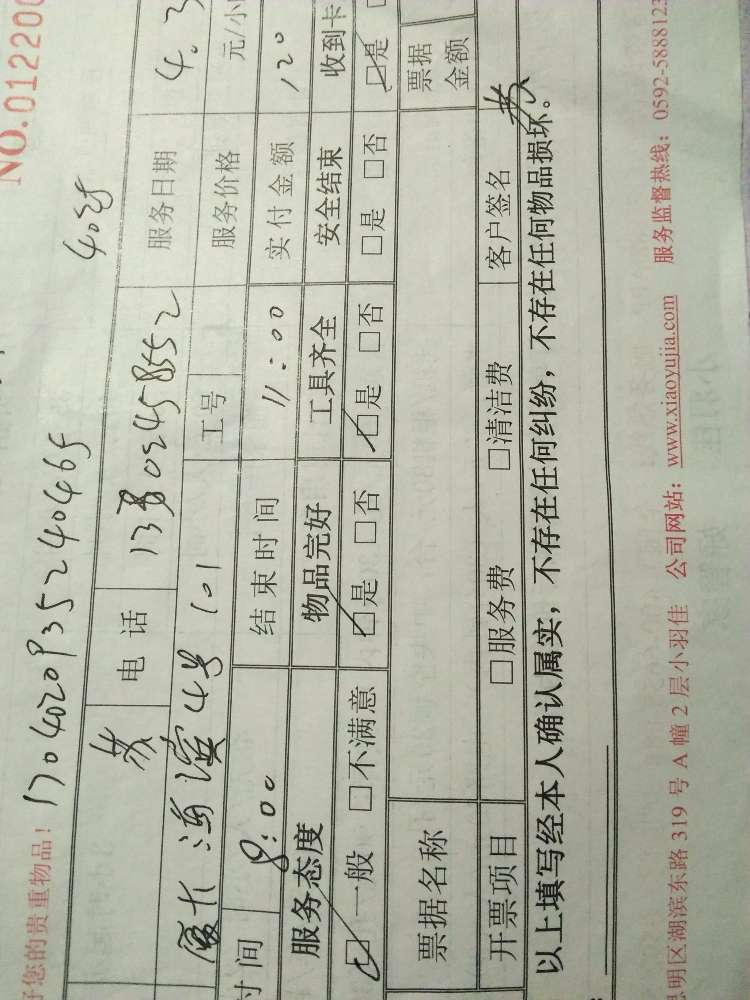 NO.012200
好您的贵重物品! 1704020935240465
苏 电 话 服务日期 4.3
厦大海滨4号 101 工号 服务价格 元/小
时间 8:00 结束时间 11:00 实付金额 120
服务态度 物品完好 工具齐全 安全结束 收到卡
☑一般 □不满意 ☑是 □否 ☑是 □否 □是 □否 ☑是
票据名称 票据金额
开票项目 □服务费 □清洁费 客户签名 苏
以上填写经本人确认属实,不存在任何纠纷,不存在任何物品损坏。
思明区湖滨东路 319 号 A 幢 2 层小羽佳 公司网站: www.xiaoyujia.com 服务监督热线: 0592-5888123